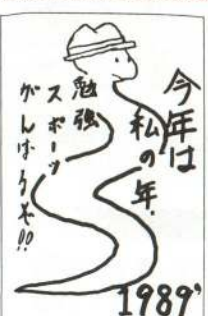 今年は
私の年.
勉強
スポーツ
がんばるぞ!!
1989'